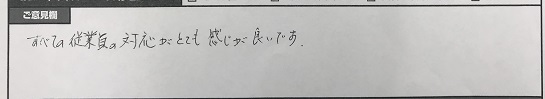 ご意見欄
すべての従業員の対応がとても感じが良いです.